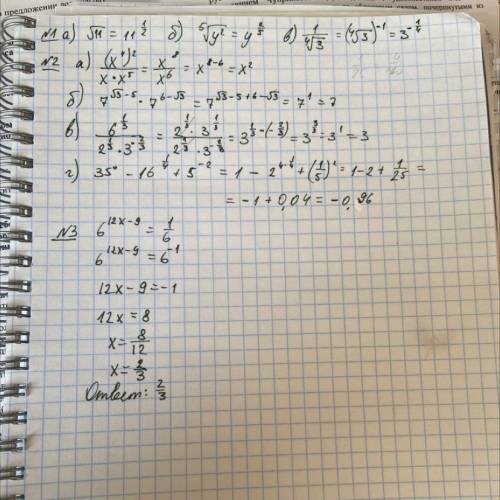 №1 а) √11 = 11^(1/2) б) ⁵√y² = y^(2/5) в) 1/⁴√3 = (⁴√3)^(-1) = 3^(-1/4)
№2 а) (x⁴)²/(x·x⁵) = x⁸/x⁶ = x^(8-6) = x²
б) 7^(√3-5) · 7^(6-√3) = 7^(√3-5+6-√3) = 7¹ = 7
в) 6^(1/3)/(2^(1/3)·3^(-2/3)) = 2^(1/3)·3^(1/3)/(2^(1/3)·3^(-2/3)) = 3^(1/3-(-2/3)) = 3^(3/3) = 3¹ = 3
г) 35° - 16^(1/4) + 5^(-2) = 1 - 2^(4·1/4) + (1/5)² = 1-2 + 1/25 =
= -1 + 0,04 = -0,96
№3 6^(12x-9) = 1/6
6^(12x-9) = 6^(-1)
12x - 9 = -1
12x = 8
x = 8/12
x = 2/3
Ответ: 2/3